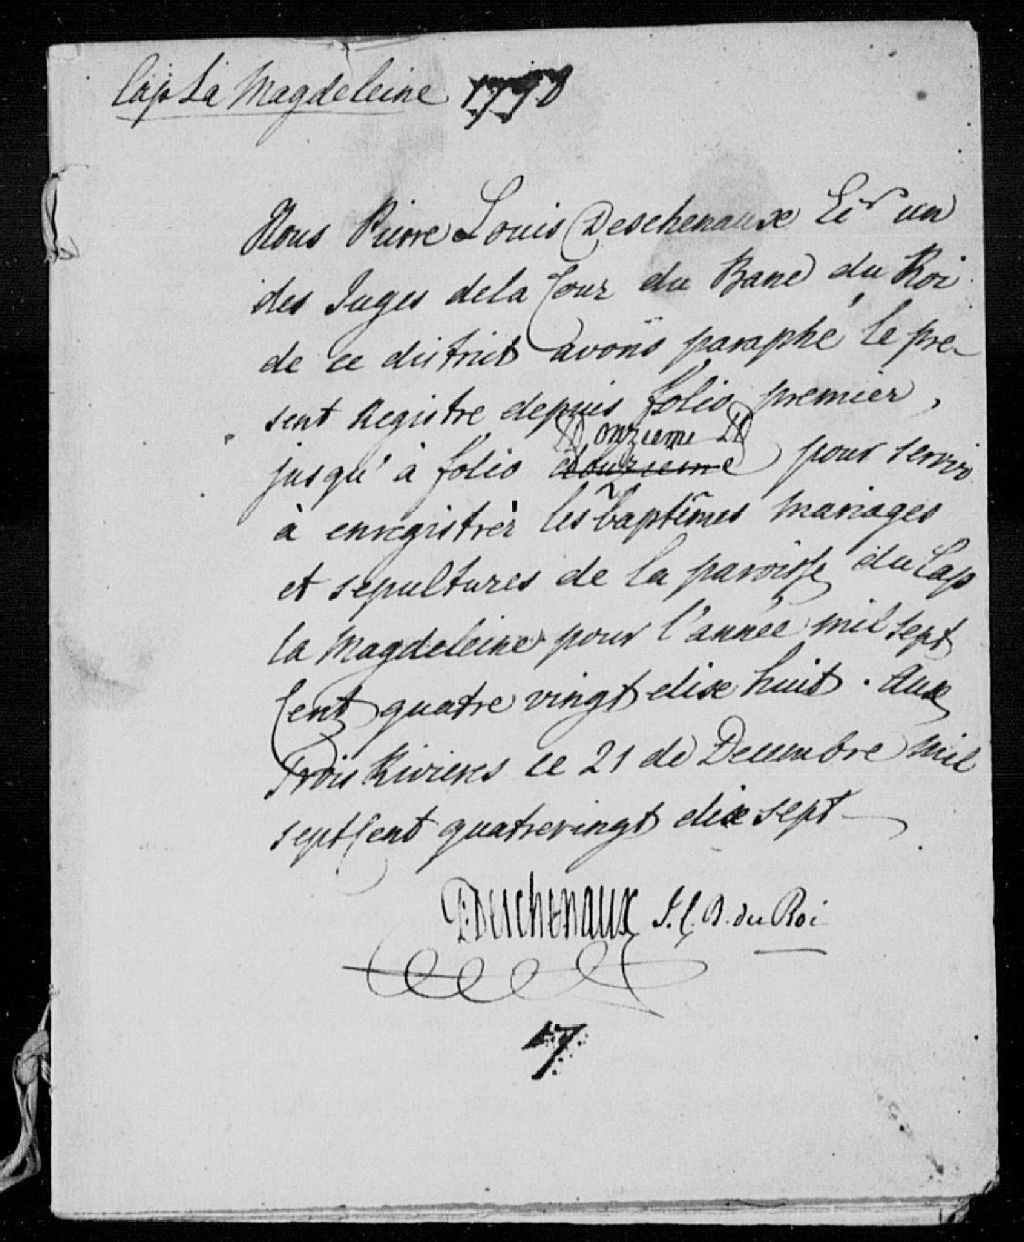 Cap La Magdeleine 1798
Nous Pierre Louis Deschenaux Ecr un
des Juges dela Cour du Banc du Roi
de ce district avons paraphé le pre-
sent Registre depuis folio premier,
PD onzieme PD
jusqu'à folio douzieme pour servir
à enregistrer les baptêmes mariages
et sepultures de la paroisse du Cap
la Magdeleine pour l'année mil sept
Cent quatre vingt dix huit. Aux
Trois Rivieres ce 21 de Decembre mil
sept Cent quatrevingt dix sept
PDeschenaux J. C. B. du Roi
17